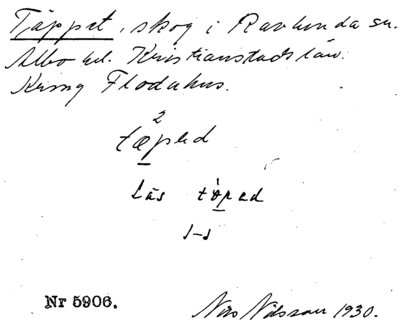 Täppet, skog i Ravlunda sn.
Albo hd. Kristianstads län.
Kring Flodahus.
2
tæped
läs töped
s-s
Nr 5906. Nils Nilsson 1930.